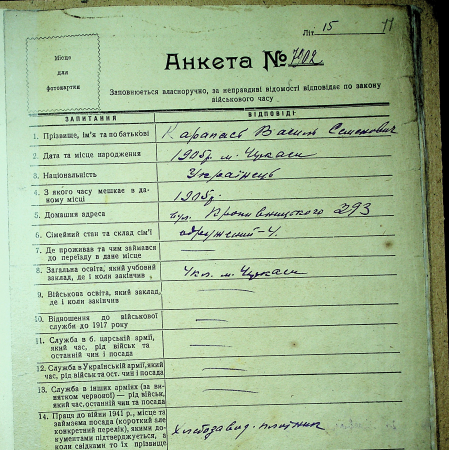 Літ. 15 11
Місце
для
фотокартки
Анкета № 7602
Заповнюється власноручно, за неправдиві відомості відповідає по закону
військового часу
ЗАПИТАННЯ ВІДПОВІДІ
1. Прізвище, ім'я та по батькові Карапась Василь Семенович
2. Дата та місце народження 1905р. м. Чукаси
3. Національність Українець
4. З якого часу мешкає в да-
ному місці 1905р.
5. Домашня адреса вул. Кропивницького 293
6. Сімейний стан та склад сім'ї одружений-4.
7. Де проживав та чим займався
до переїзду в дане місце
8. Загальна освіта, який учбовий
заклад, де і коли закінчив 4кл. м. Чукаси
9. Військова освіта, який заклад,
де і коли закінчив
10. Відношення до військової
служби до 1917 року
11. Служба в б. царській армії,
який час, рід військ та
останній чин і посада
12. Служба в Українській армії, який
час, рід військ та ост. чин і посада
13. Служба в інших арміях (за ви-
нятком червоної) — рід військ,
який час, останній чин та посада
14. Праця до війни 1941 р., місце та
займаєма посада (короткий але
конкретний перелік), якими до-
кументами підтверджується, а
коли свідками то їх прізвище
Хлібозавод-плотник